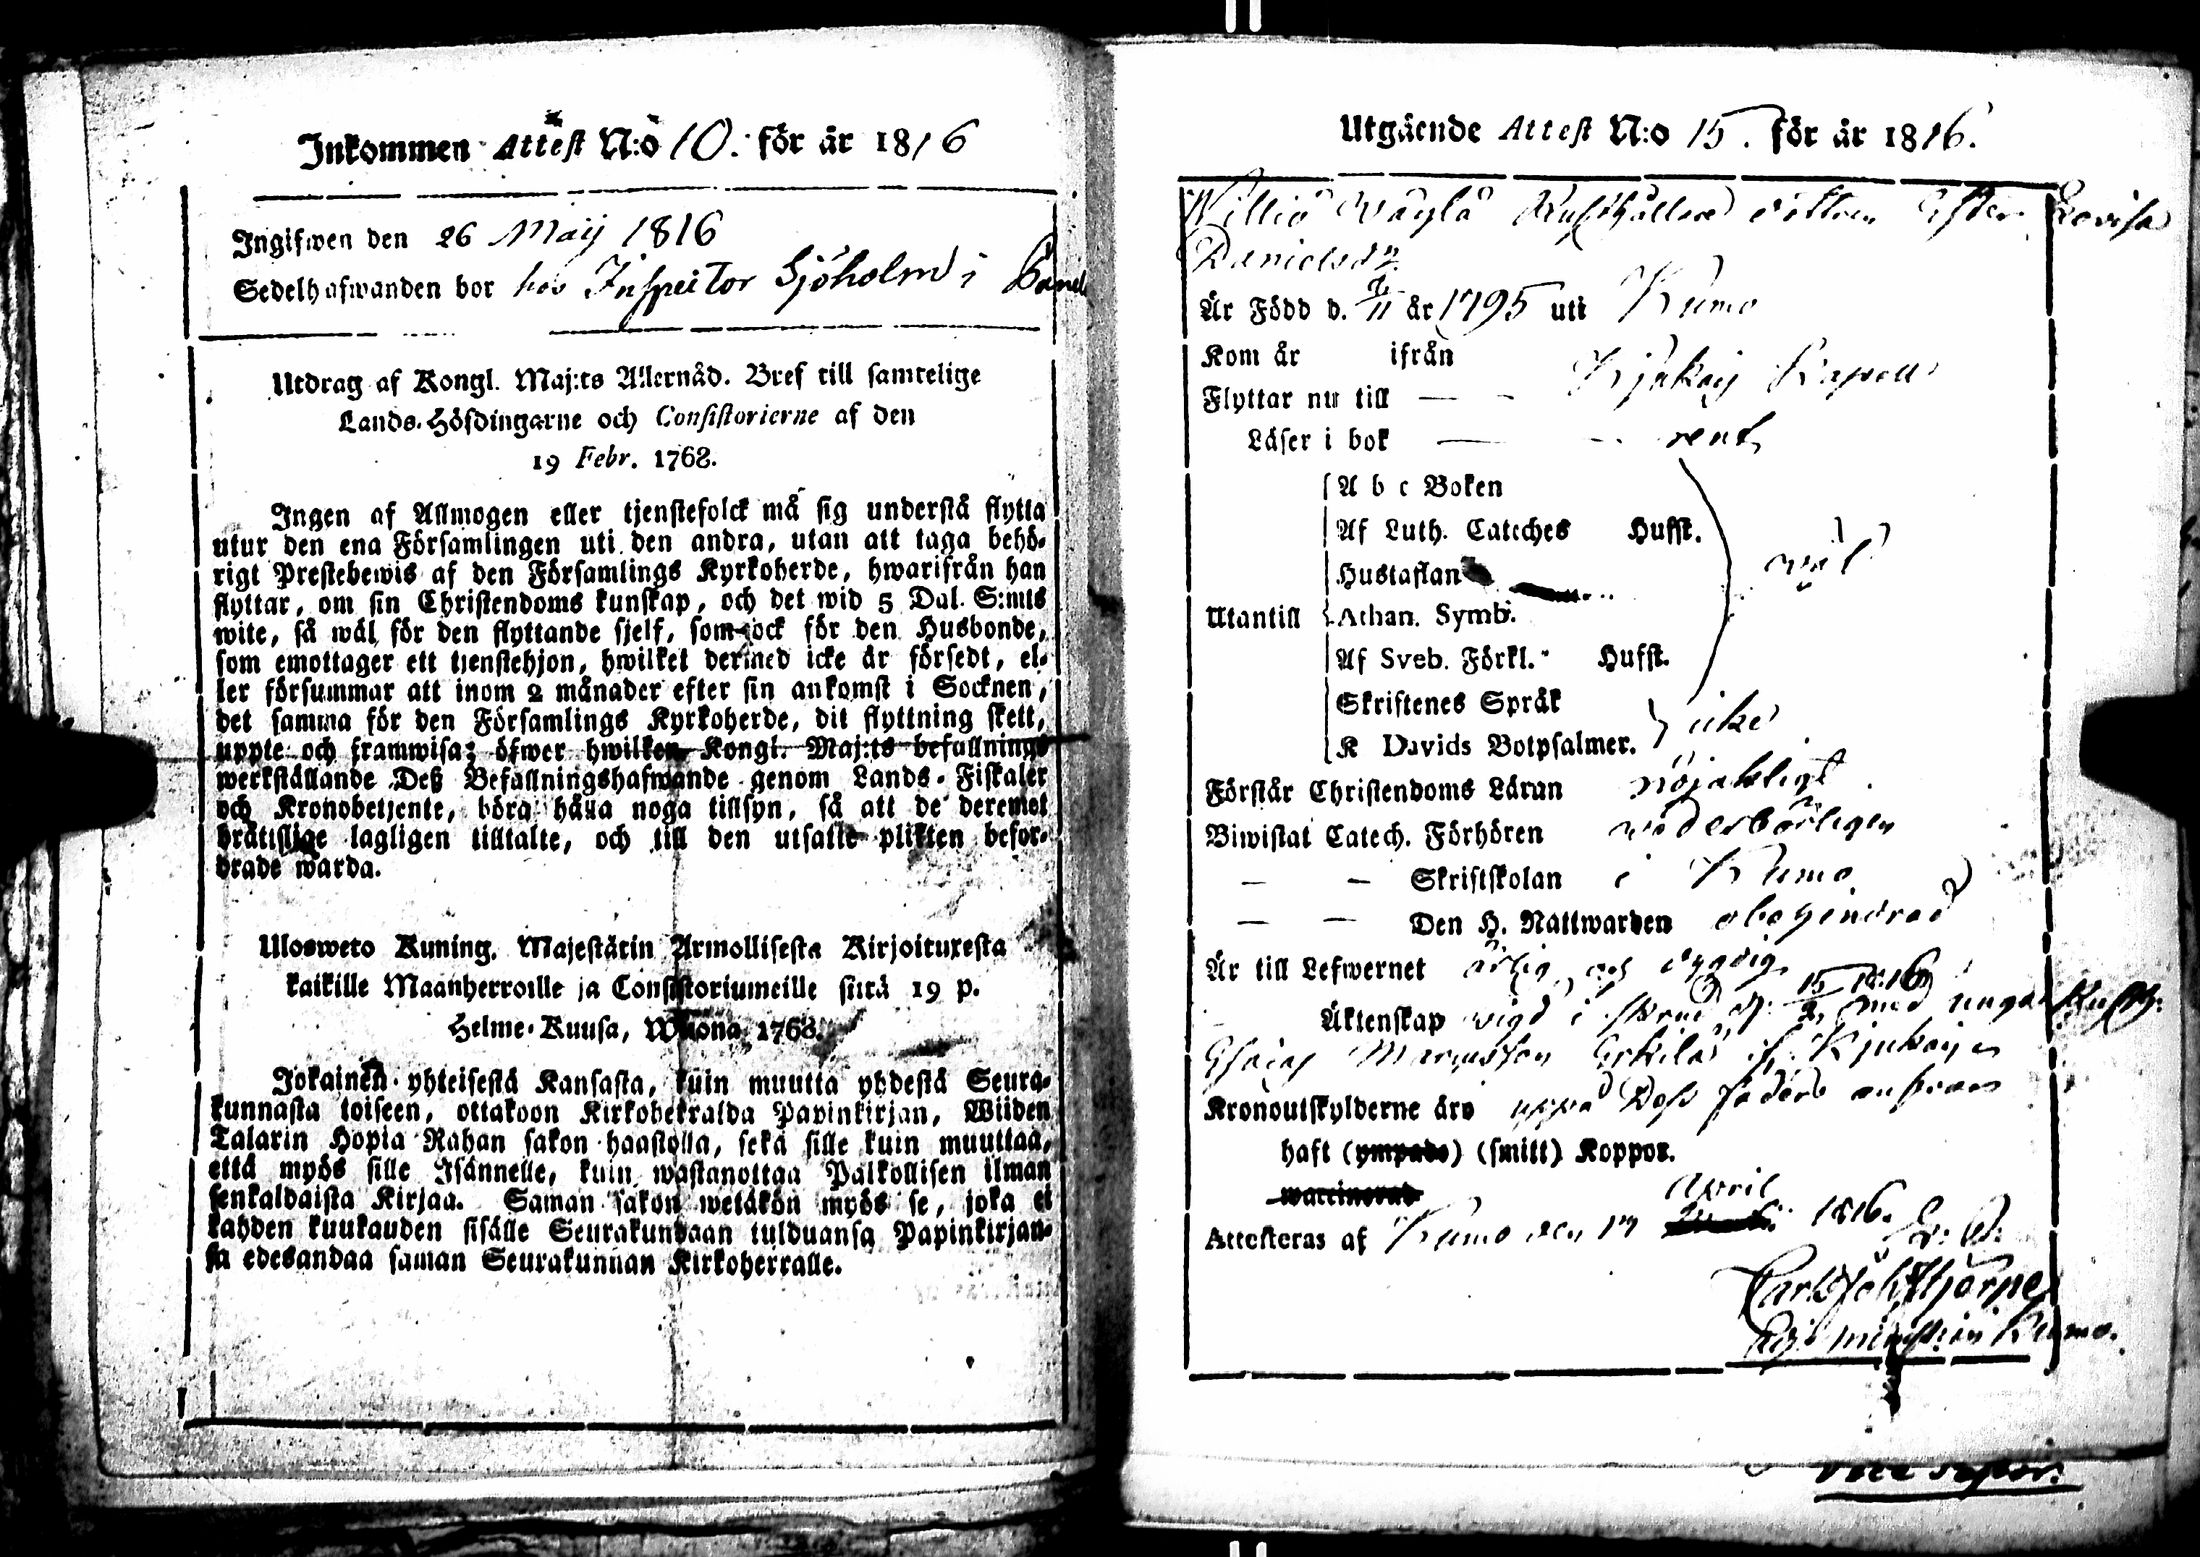 Inkommen Attest N:o 10. för år 1816
Ingifwen den 26 Maij 1816
Sedelhafwanden bor hos Inspector Sjöholm i
Utdrag af Kongl. Maj:ts Allernåd. Bref till samtelige
Lands-Höfdingarne och Consistorierne af den
19 Febr. 1768.
Ingen af Allmogen eller tjenstefolck må sig understå flytta
utur den ena Församlingen uti den andra, utan att taga behö-
rigt Prestebewis af den Församlings Kyrkoherde, hwarifrån han
flyttar, om sin Christendoms kunskap, och det wid 5 Dal. S:mts
wite, så wäl för den flyttande sjelf, som ock för den Husbonde,
som emottager ett tjenstehjon, hwilket dermed icke är försedt, el-
ler försummar att inom 2 månader efter sin ankomst i Socknen,
det samma för den Församlings Kyrkoherde, dit flyttning skett,
uppte och framwisa; öfwer hwilken Kongl. Maj:ts befallnings
werkställande Deß Befallningshafwande genom Lands-Fiskaler
och Kronobetjente, böra hålla noga tillsyn, så att de deremot
bråttslige lagligen tilltalte, och till den utsatte plikten befor-
drade warda.
Ulosweto Kuning. Majestätin Armollisesta Kirjoituxesta
kaikille Maanherroille ja Consistoriumeille siitä 19 p.
Helme-Kuusa, Wuona 1768.
Jokainen yhteisestä Kansasta, kuin muutta yhdestä Seura-
kunnasta toiseen, ottakoon Kirkoherralda Papinkirjan, Wiiden
Talarin Hopia Rahan sakon haastolla, sekä sille kuin muuttaa,
että myös sille Isännelle, kuin wastanottaa Palkollisen ilman
senkaldaista Kirjaa. Saman sakon wetäkön myös se, joka ei
kahden kuukauden sisälle Seurakundaan tulduansa Papinkirjan-
sa edesandaa saman Seurakunnan Kirkoherralle.
Utgående Attest N:o 15. för år 1816.
Rusthållare dottren Ester Lovisa
Danielsdr.
Är Född d. år 1795 uti Kumo
Kom år ifrån
Flyttar nu till — - Kjukais Kapell
Läser i bok — - rent
A b c Boken
Af Luth. Cateches Hufst.
Hustaflan
wäl
Utantill Athan. Symb.
Af Sveb. Förkl. Hufst.
Skriftenes Språk
icke
K Davids Botpsalmer.
Förstår Christendoms Läran nöjaktigt
Biwistat Catech. Förhören wederbörligen
— — Skriftskolan i Kumo
— — Den H. Nattwarden obehindrad
Är till Lefwernet ärlig och dygdig
Äktenskap wigd i 1816 med unga Rusth:
Esaias Kjukais
Kronoutskylderne äro uppå Dess faders answar
haft (ympade) (smitt) Koppor.
waccinerad
April
Attesteras af Kumo den 17 1816.
Kumo.